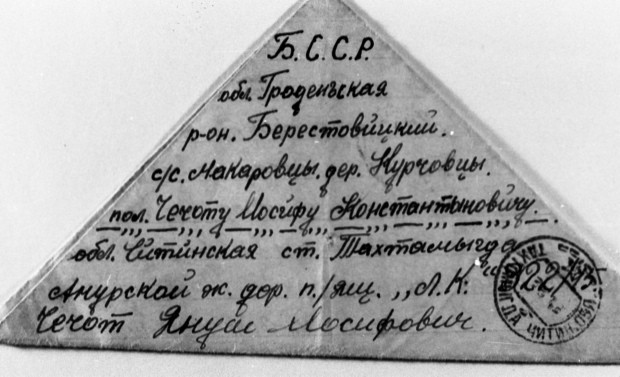 Б.С.С.Р.
обл. Гроденьская
р-он. Берестовицкий.
с/с. Макаровцы. дер. Курчовцы.
пол. Чечоту Иосифу Константиновичу.
обл. Читинская ст. Тахтамыгда
Амурской ж. дор. п./ящ. „Л.К."
Чечот Януш Иосифович.
ТАХТАМЫГДА ЧИТИН. ОБЛ.
22